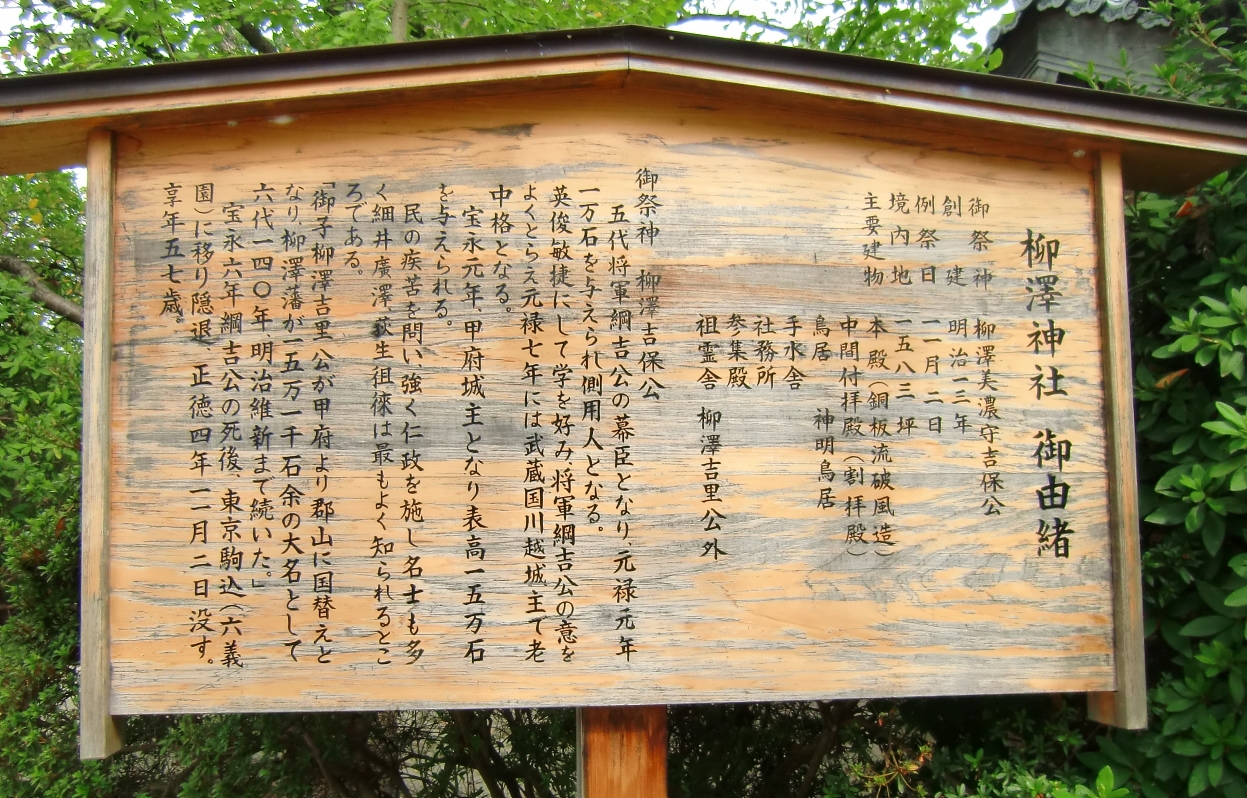 柳澤神社 御由緒
御祭神 柳澤美濃守吉保公
創建 明治一三年
例祭日 一一月二日
境内地 一五八三坪
主要建物 本殿（銅板流破風造）
中間付拝殿（割拝殿）
鳥居 神明鳥居
手水舎
社務所
参集殿
祖霊舎 柳澤吉里公外
御祭神 柳澤吉保公
五代将軍綱吉公の幕臣となり、元禄元年
一万石を与えられ側用人となる。
英俊敏捷にして学を好み、将軍綱吉公の意を
よくとらえ元禄七年には武蔵国川越城主て老
中格となる。
宝永元年、甲府城主となり表高一五万石
を与えられる。
民の疾苦を問い、強く仁政を施し名士も多
く細井廣澤、荻生徂徠は最もよく知られるとこ
ろである。
「御子柳澤吉里公が甲府より郡山に国替えと
なり柳澤藩が一五万一千石余の大名として
六代一四〇年明治維新まで続いた。」
宝永六年綱吉公の死後、東京駒込（六義
園）に移り隠退、正徳四年一一月二日没す。
享年五七歳。